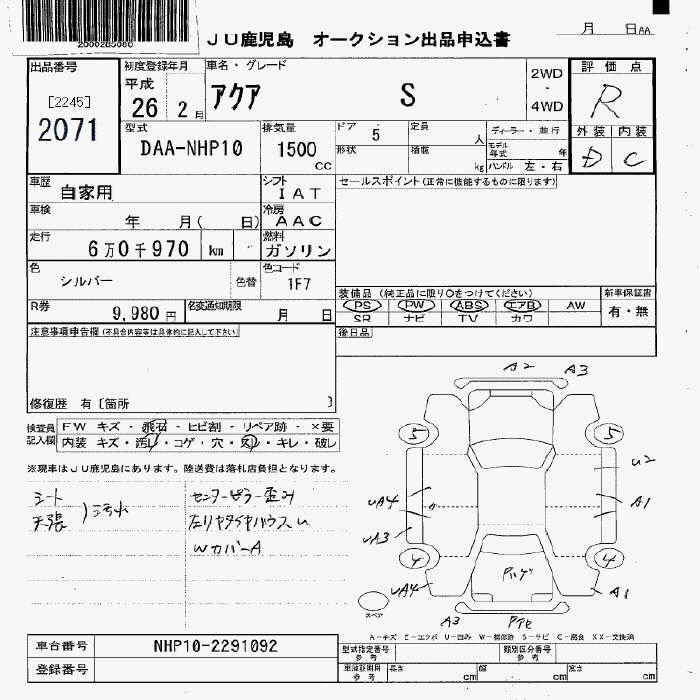 2000285080
JU鹿児島 オークション出品申込書
月 日AA
出品番号
[2245]
2071
初度登録年月
平成
26 2 月
車名・グレード
アクア S
2WD
・
4WD
評価点
R
外装 内装
D C
型式
DAA-NHP10
排気量
1500
CC
ドア 5
定員 人
ディーラー・並行
形状
積載 kg
モデル年式 年
ハンドル 左・右
車歴
自家用
シフト
IAT
セールスポイント(正常に機能するものに限ります)
車検
年 月( 日)
冷房
AAC
走行
6万0千970 km
燃料
ガソリン
色
シルバー
色替
色コード
1F7
装備品(純正品に限り○をつけてください)
新車保証書
PS PW ABS エアB AW
有・無
SR ナビ TV カワ
R券
9,980円
名変通知期限
月 日
後日品
注意事項申告欄(不具合内容等は具体的に記入して下さい)
修復歴 有〔箇所 〕
検査員記入欄
FW キズ・飛石・ヒビ割・リペア跡・×要
内装 キズ・汚れ・コゲ・穴・刈レ・キレ・破レ
※現車はJU鹿児島にあります。陸送費は落札店負担となります。
シート
天張 )汚れ
センターピラー歪み
左リヤタイヤハウスU
WカバーA
A2 A3
5 5
U2
UA4 A1
UA3
4 4
UA4 A1
A3
スペア
A-キズ E-エクボ U-凹み W-補修跡 S-サビ C-腐食 XX-交換済
車台番号
NHP10-2291092
登録番号
型式指定番号
参考
類別区分番号
参考
車庫証明用
参考
長さ cm
幅 cm
高さ cm